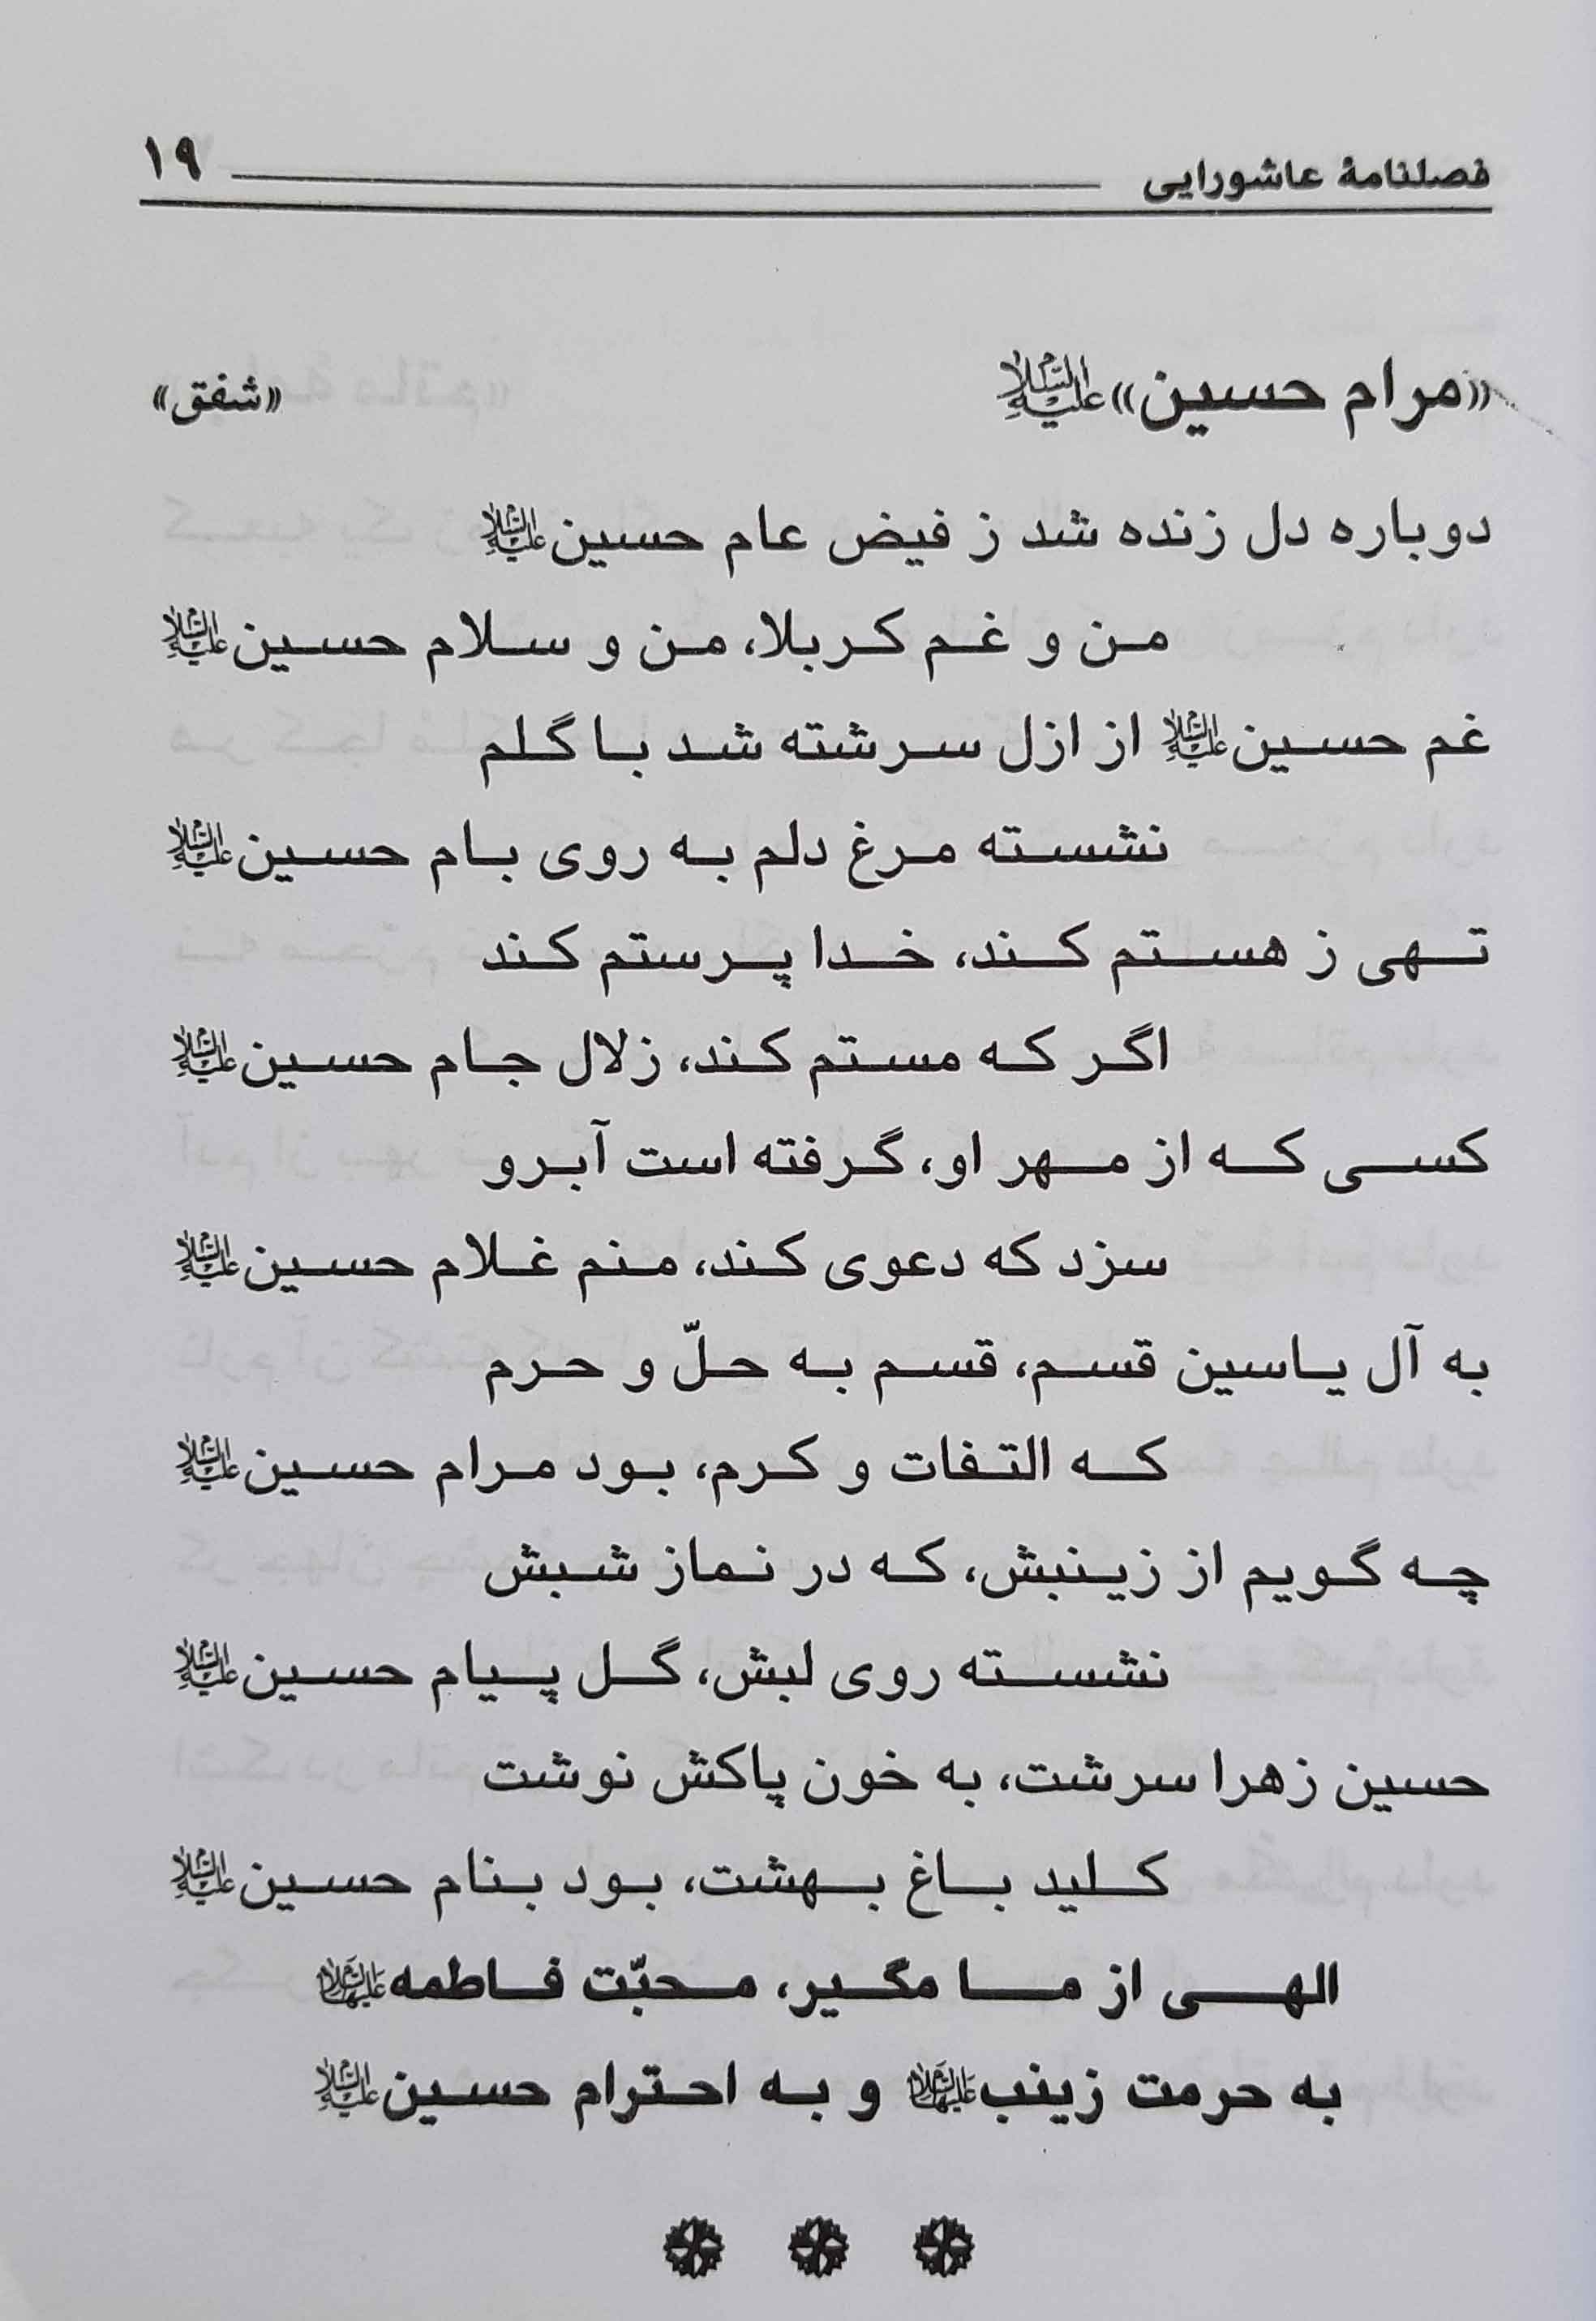 فصلنامهٔ عاشورایی ۱۹
«مرام حسین» علیه‌السلام «شفق»
دوباره دل زنده شد ز فیض عام حسین علیه‌السلام
من و غم کربلا، من و سلام حسین علیه‌السلام
غم حسین علیه‌السلام از ازل سرشته شد با گلم
نشسته مرغ دلم به روی بام حسین علیه‌السلام
تهی ز هستم کند، خدا پرستم کند
اگر که مستم کند، زلال جام حسین علیه‌السلام
کسی که از مهر او، گرفته است آبرو
سزد که دعوی کند، منم غلام حسین علیه‌السلام
به آل یاسین قسم، قسم به حلّ و حرم
که التفات و کرم، بود مرام حسین علیه‌السلام
چه گویم از زینبش، که در نماز شبش
نشسته روی لبش، گل پیام حسین علیه‌السلام
حسین زهرا سرشت، به خون پاکش نوشت
کلید باغ بهشت، بود بنام حسین علیه‌السلام
الهی از ما مگیر، محبّت فاطمه علیهاالسلام
به حرمت زینب علیهاالسلام و به احترام حسین علیه‌السلام